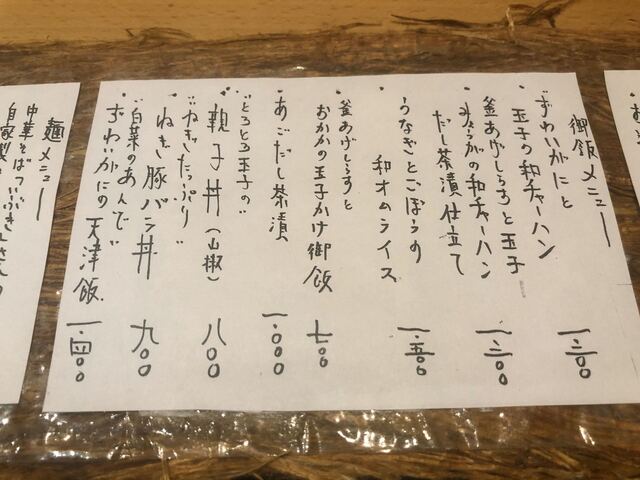 御飯メニュー
・ずわいがにと
玉子の和チャーハン
一三〇〇
・釜あげしらすと玉子
みょうがの和チャーハン
だし茶漬仕立て
一、三〇〇
・うなぎとごぼうの
和オムライス
一、五〇〇
・釜あげしらすと
おかかの玉子かけ御飯
七〇〇
・あごだし茶漬
一、〇〇〇
・"とろとろ玉子の"
親子丼(山椒)
八〇〇
・"ねぎたっぷり"
ねぎ豚バラ丼
九〇〇
・"白菜のあんで"
ずわいがにの天津飯
一、四〇〇
麺メニュー
中華そば
自家製